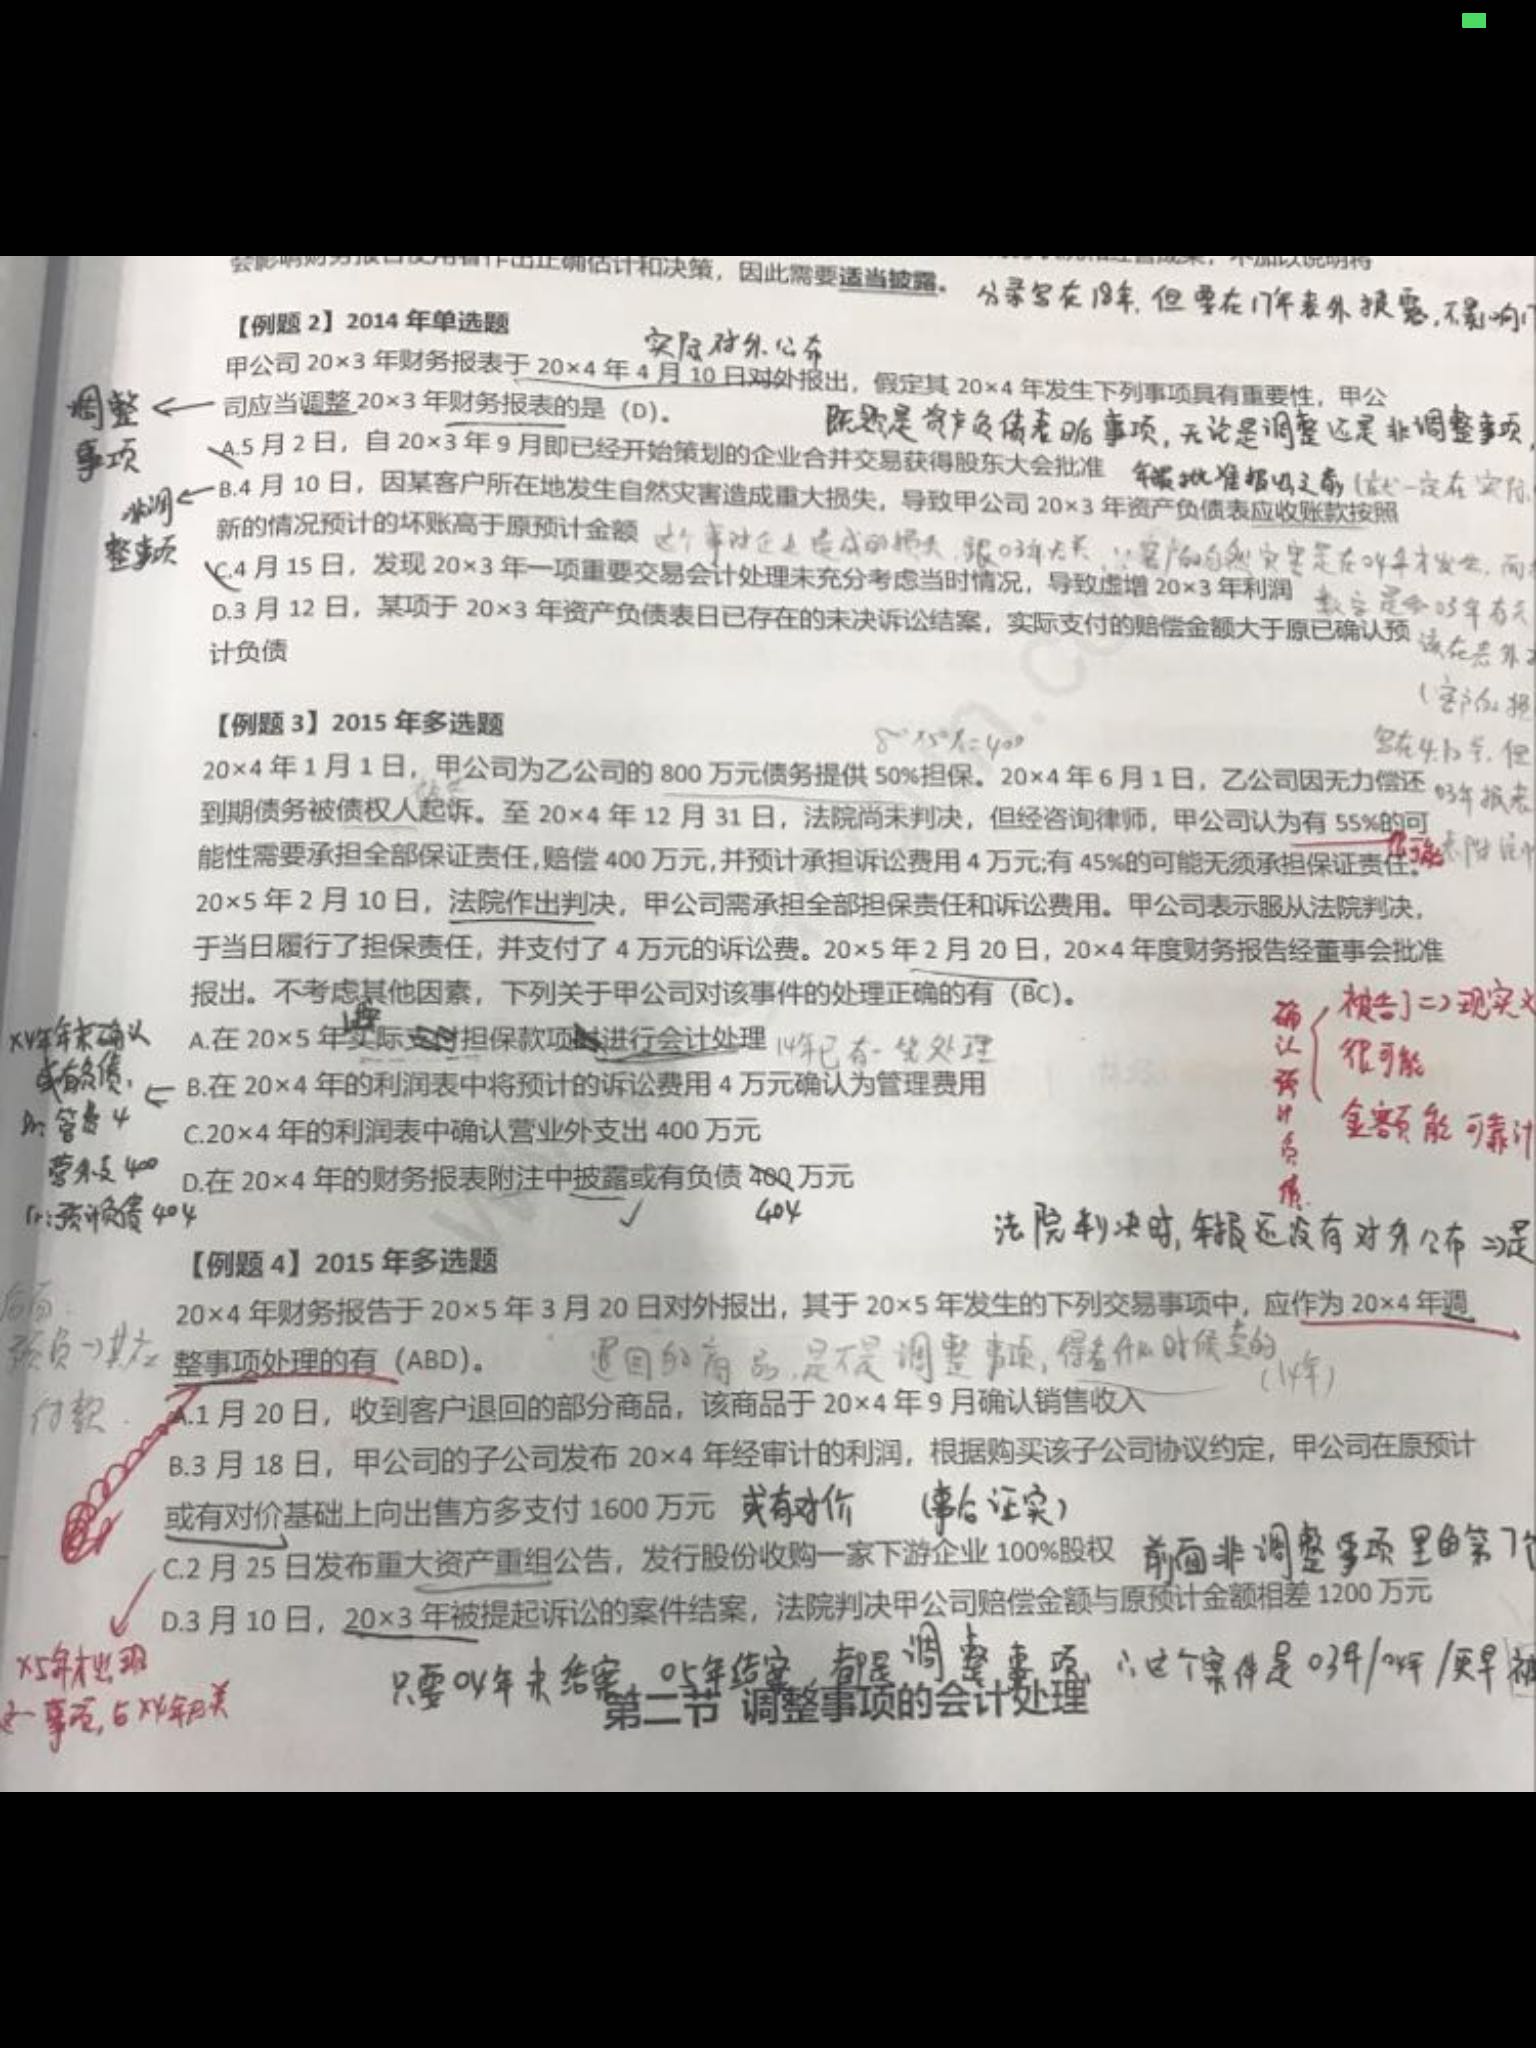 会影响财务报告使用者作出正确估计和决策，因此需要适当披露。
分录写在18年，但要在17年表外披露，不影响17
【例题 2】2014 年单选题
实际对外公布
甲公司 20×3 年财务报表于 20×4 年 4 月 10 日对外报出，假定其 20×4 年发生下列事项具有重要性，甲公
调整事项
司应当调整 20×3 年财务报表的是（D）。
既然是资产负债表日后事项，无论是调整还是非调整事项，
A.5 月 2 日，自 20×3 年 9 月即已经开始策划的企业合并交易获得股东大会批准
年报批准报出之前（一定在实际
非调整事项
B.4 月 10 日，因某客户所在地发生自然灾害造成重大损失，导致甲公司 20×3 年资产负债表应收账款按照
新的情况预计的坏账高于原预计金额
这个事对企业造成的损失，跟03年无关，∵客户的自然灾害是在04年才发生，而
C.4 月 15 日，发现 20×3 年一项重要交易会计处理未充分考虑当时情况，导致虚增 20×3 年利润
D.3 月 12 日，某项于 20×3 年资产负债表日已存在的未决诉讼结案，实际支付的赔偿金额大于原已确认预
计负债
该在表外
【例题 3】2015 年多选题
800×50%=400
20×4 年 1 月 1 日，甲公司为乙公司的 800 万元债务提供 50%担保。20×4 年 6 月 1 日，乙公司因无力偿还
到期债务被债权人起诉。至 20×4 年 12 月 31 日，法院尚未判决，但经咨询律师，甲公司认为有 55%的可
03年报表
很可能
能性需要承担全部保证责任，赔偿 400 万元，并预计承担诉讼费用 4 万元；有 45%的可能无须承担保证责任。
20×5 年 2 月 10 日，法院作出判决，甲公司需承担全部担保责任和诉讼费用。甲公司表示服从法院判决，
于当日履行了担保责任，并支付了 4 万元的诉讼费。20×5 年 2 月 20 日，20×4 年度财务报告经董事会批准
报出。不考虑其他因素，下列关于甲公司对该事件的处理正确的有（BC）。
确认预计负债
被告了⇒现实义
很可能
金额能可靠计
A.在 20×5 年实际支付担保款项时进行会计处理
14年已有一笔处理
X4年年末确认
或有负债，
B.在 20×4 年的利润表中将预计的诉讼费用 4 万元确认为管理费用
Dr: 管费 4
C.20×4 年的利润表中确认营业外支出 400 万元
营外支 400
D.在 20×4 年的财务报表附注中披露或有负债 400 万元
404
Cr: 预计负债 404
法院判决时，年报还没有对外公布⇒是
【例题 4】2015 年多选题
20×4 年财务报告于 20×5 年 3 月 20 日对外报出，其于 20×5 年发生的下列交易事项中，应作为 20×4 年调
后面
整事项处理的有（ABD）。
退回的商品，是不是调整事项，得看什么时候卖的
（14年）
预负→其应
付款
A.1 月 20 日，收到客户退回的部分商品，该商品于 20×4 年 9 月确认销售收入
B.3 月 18 日，甲公司的子公司发布 20×4 年经审计的利润，根据购买该子公司协议约定，甲公司在原预计
或有对价基础上向出售方多支付 1600 万元
或有对价 （事后证实）
C.2 月 25 日发布重大资产重组公告，发行股份收购一家下游企业 100%股权
前面非调整事项里的第7个
D.3 月 10 日，20×3 年被提起诉讼的案件结案，法院判决甲公司赔偿金额与原预计金额相差 1200 万元
X5年才出现
这一事项，与X4年无关
只要04年未结案，05年结案，都是调整事项，∴这个案件是03年/04年/更早被
第二节 调整事项的会计处理